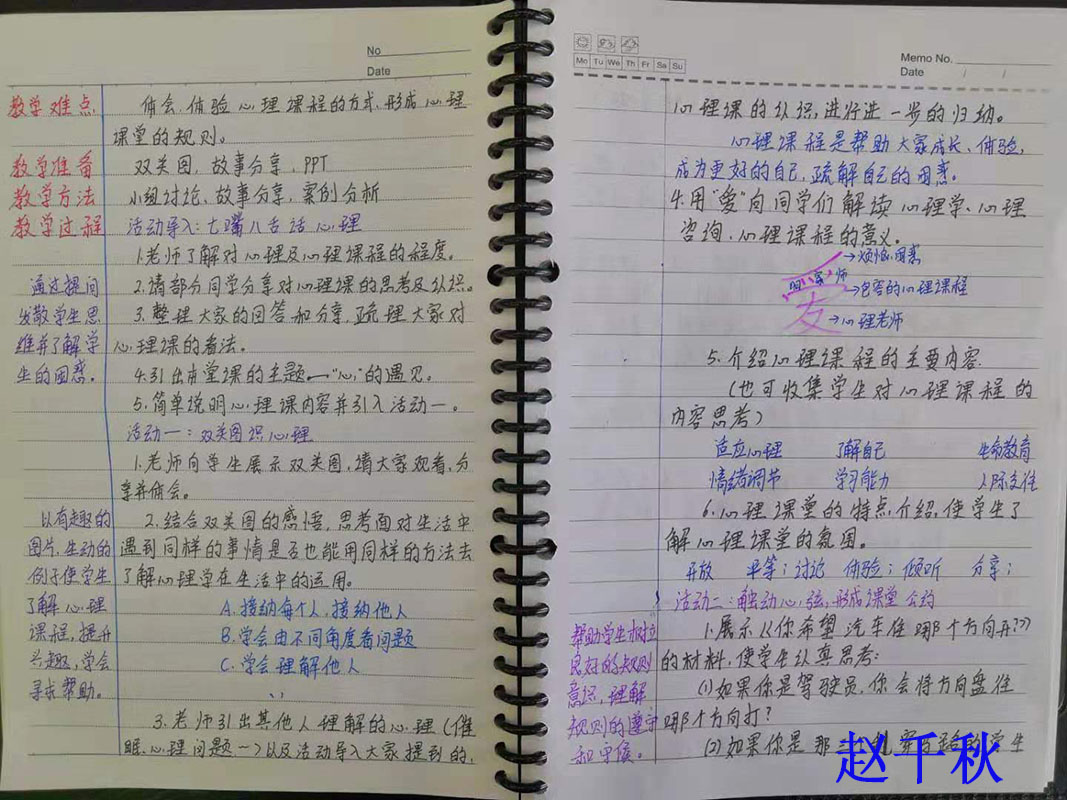 No
Date
教学难点
体会、体验心理课程的方式,形成心理
课堂的规则。
教学准备
双关图、故事分享、PPT
教学方法
小组讨论、故事分享、案例分析
教学过程
活动导入:七嘴八舌话心理
1.老师了解对心理及心理课程的程度。
2.请部分同学分享对心理课的思考及认识。
3.整理大家的回答和分享,疏理大家对
心理课的看法。
4.引出本堂课的主题——"心"的遇见。
5.简单说明心理课内容并引入活动一。
通过提问
发散学生思
维并了解学
生的困惑。
活动一:双关图识心理
1.老师向学生展示双关图,请大家观看,分
享并体会。
2.结合双关图的感悟,思考面对生活中
遇到同样的事情是否也能用同样的方法去
了解心理学在生活中的运用。
A.接纳每个人,接纳他人
B.学会由不同角度看问题
C.学会理解他人
以有趣的
图片,生动的
例子使学生
了解心理
课程,提升
兴趣,学会
寻求帮助。
3.老师引出其他人理解的心理(催
眠、心理问题一)以及活动导入大家提到的,
Mo Tu We Th Fr Sa Su
Memo No.
Date / /
心理课的认识,进行进一步的归纳。
心理课程是帮助大家成长、体验,
成为更好的自己,疏解自己的困惑。
4.用"爱"向同学们解读心理学、心理
咨询、心理课程的意义。
→烦恼、困惑
师
→包容的心理课程
友
→心理老师
5.介绍心理课程的主要内容.
(也可收集学生对心理课程的
内容思考)
适应心理 了解自己 生命教育
情绪调节 学习能力 人际交往
6.心理课堂的特点介绍,使学生了
解心理课堂的氛围。
开放 平等;讨论 体验;倾听 分享;
活动二:触动心弦,形成课堂公约
1.展示《你希望汽车往哪个方向开?》
的材料,使学生认真思考:
(1)如果你是驾驶员,你会将方向盘往
哪个方向打?
(2)如果你是那
学生
帮助学生树立
良好的规则
意识,理解
规则的遵守
和守候。
赵千秋